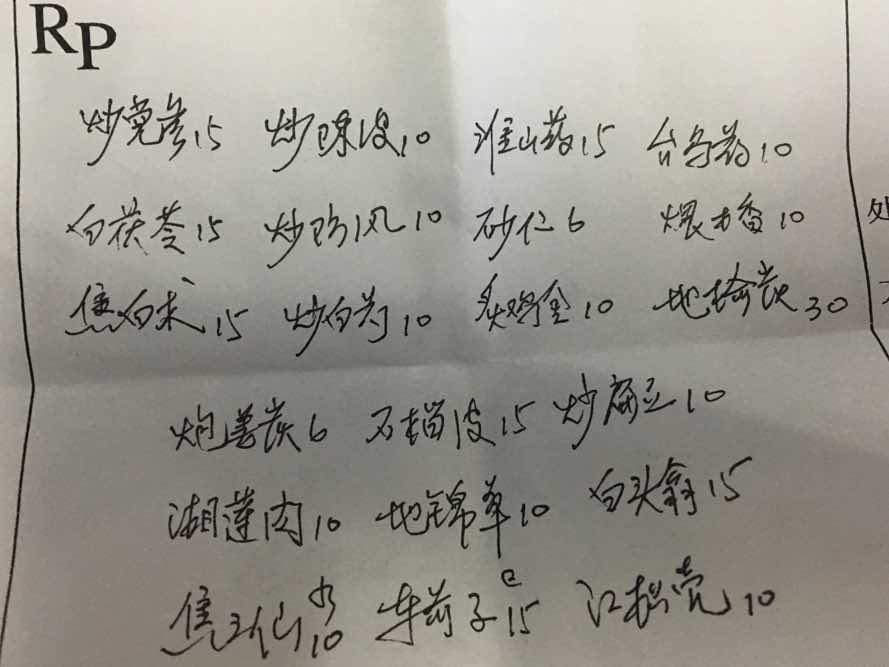 RP
炒党参15 炒陈皮10 淮山药15 台乌药10
白茯苓15 炒防风10 砂仁6 煨木香10
处
焦白术15 炒白芍10 炙鸡金10 地榆炭30
炮姜炭6 石榴皮15 炒扁豆10
湖莲肉10 地锦草10 白头翁15
焦三仙各10 车前子包15 江枳壳10